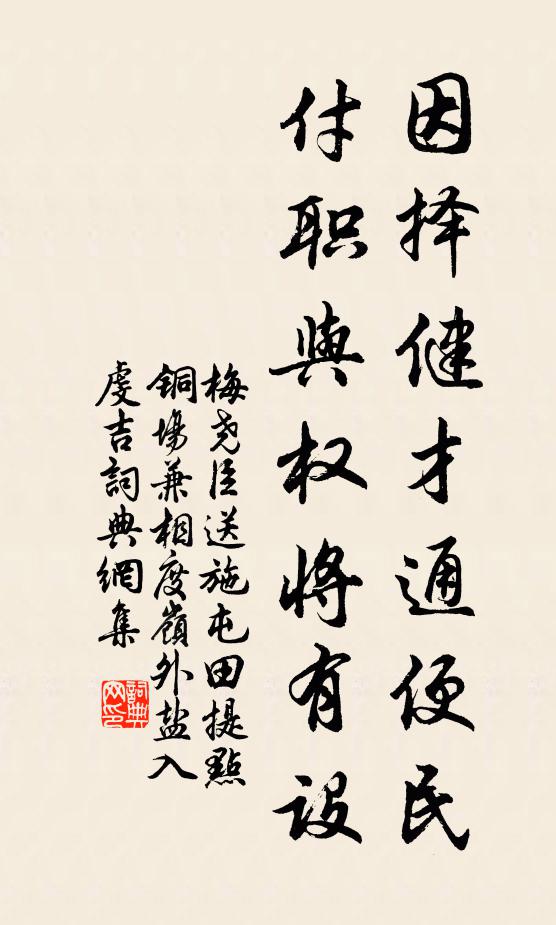 因择健才通便民
付职与权将有设
梅尧臣送施屯田提點
铜場兼相度嶺外盐入
虔吉詞典網集
詞典网印